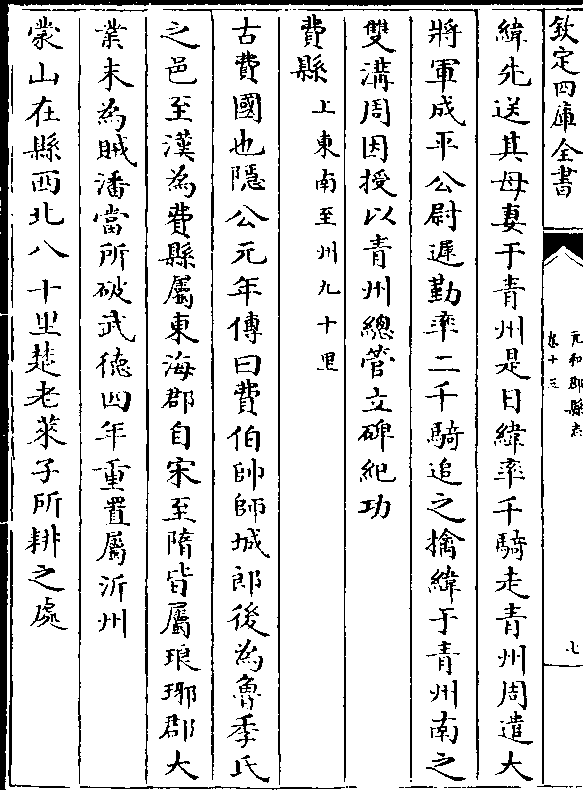 欽定四庫全書
元和郡縣志
卷十三
七
緯先送其母妻于青州是日緯率千騎走青州周遣大
將軍成平公尉遲勤率二千騎追之擒緯于青州南之
雙溝周因授以青州總管立碑紀功
費縣上東南至州九十里
古費國也隱公元年傳曰費伯帥師城郎後為魯季氏
之邑至漢為費縣屬東海郡自宋至隋皆屬琅琊郡大
業末為賊潘當所破武德四年重置屬沂州
蒙山在縣西北八十里楚老萊子所耕之處